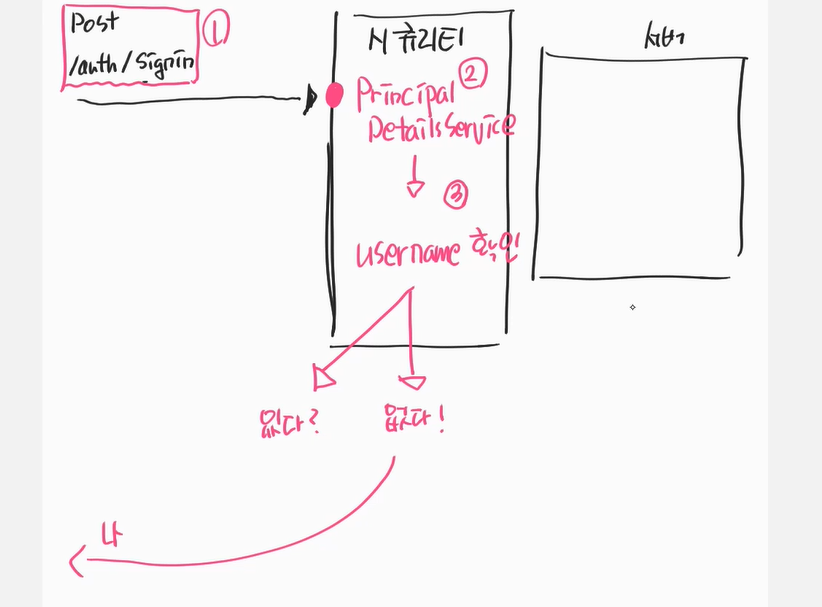 Post
/auth/signin
①
시큐리티
서버
Principal ②
DetailsService
③
username 확인
있다?
없다!
나